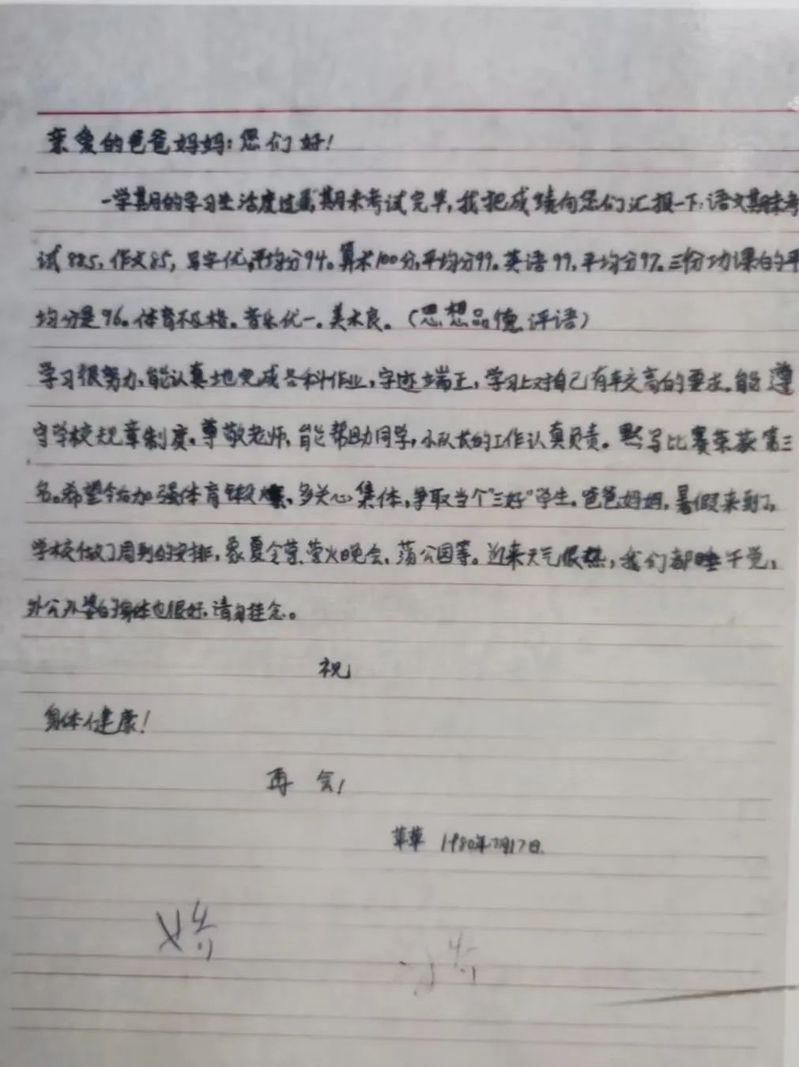 亲爱的爸爸妈妈：您们好！
一学期的学习生活度过，期末考试完毕，我把成绩向您们汇报一下：语文期末考
试88.5，作文85，写字优，平均分94。算术100分，平均分99。英语99，平均分97。三份功课的平
均分是96。体育不及格。音乐优一。美术良。（思想品德评语）
学习很努力，能认真地完成各科作业，字迹端正，学习上对自己有较高的要求。能遵
守学校规章制度。尊敬老师，能帮助同学，小队长的工作认真负责。默写比赛荣获第三
名。希望今后加强体育锻炼，多关心集体，争取当个"三好"学生。爸爸妈妈，暑假来到了，
学校做了周到的安排，象夏令营、营火晚会、游公园等。近来天气很热，我们都睡午觉，
外公外婆的身体也很好，请勿挂念。
祝
身体健康！
再会！
1980年7月17日